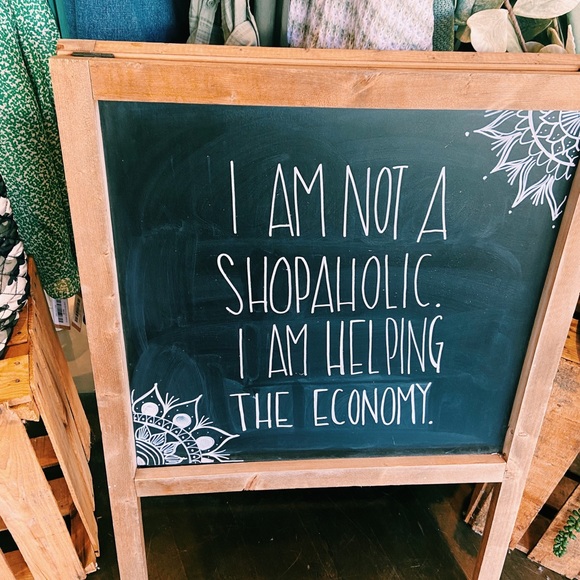 I AM NOT A
SHOPAHOLIC.
I AM HELPING
THE ECONOMY.